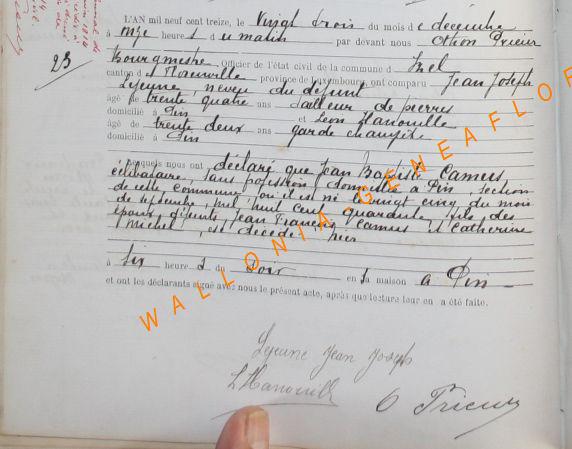 23
L'AN mil neuf cent treize, le Vingt trois du mois de décembre
à onze heures du matin par devant nous Othon Prieur
Bourgmestre Officier de l'état civil de la commune d Izel
canton de Florenville province de Luxembourg, ont comparu Jean Joseph
Lejeune, neveu du défunt
âgé de trente quatre ans tailleur de pierres
domicilié à Pin et Léon Hanouille
âgé de trente deux ans garde champêtre
domicilié à Pin
Lesquels nous ont déclaré que Jean Baptiste Camus
célibataire, sans profession, domicilié à Pin, section
de cette commune, où il est né le vingt cinq du mois
de septembre mil huit cent quarante, fils des
époux défunts, Jean François Camus et Catherine
Michel, est décédé hier
à six heures du soir en sa maison à Pin
et ont les déclarants signé avec nous le présent acte, après que lecture leur en a été faite.
Lejeune Jean Joseph
L Hanouille
O Prieur
WALLONIA GENEAFLOR